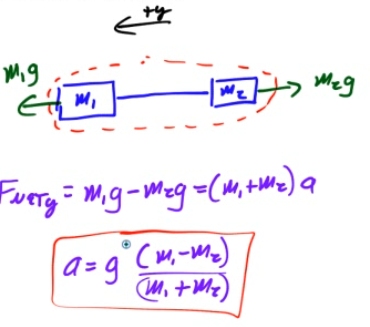 +y
m₁g m₁ m₂ m₂g
F_NETy = m₁g - m₂g = (m₁ + m₂) a
a = g (m₁ - m₂) / (m₁ + m₂)